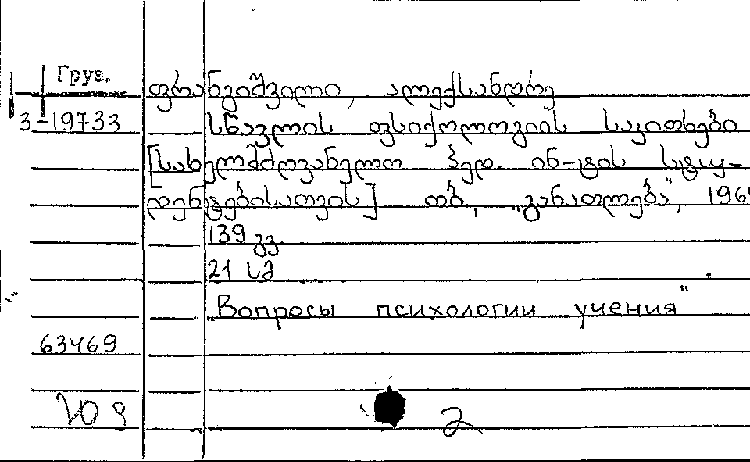 Груз.
ფრანგიშვილი, ალექსანდრე
3-19733 სწავლის ფსიქოლოგიის საკითხები
[სახელმძღვანელო პედ. ინ-ტის სტუ-
დენტებისათვის] თბ., „განათლება", 196
139 გვ.
21 სმ
"Вопросы психологии учения"
63469
2